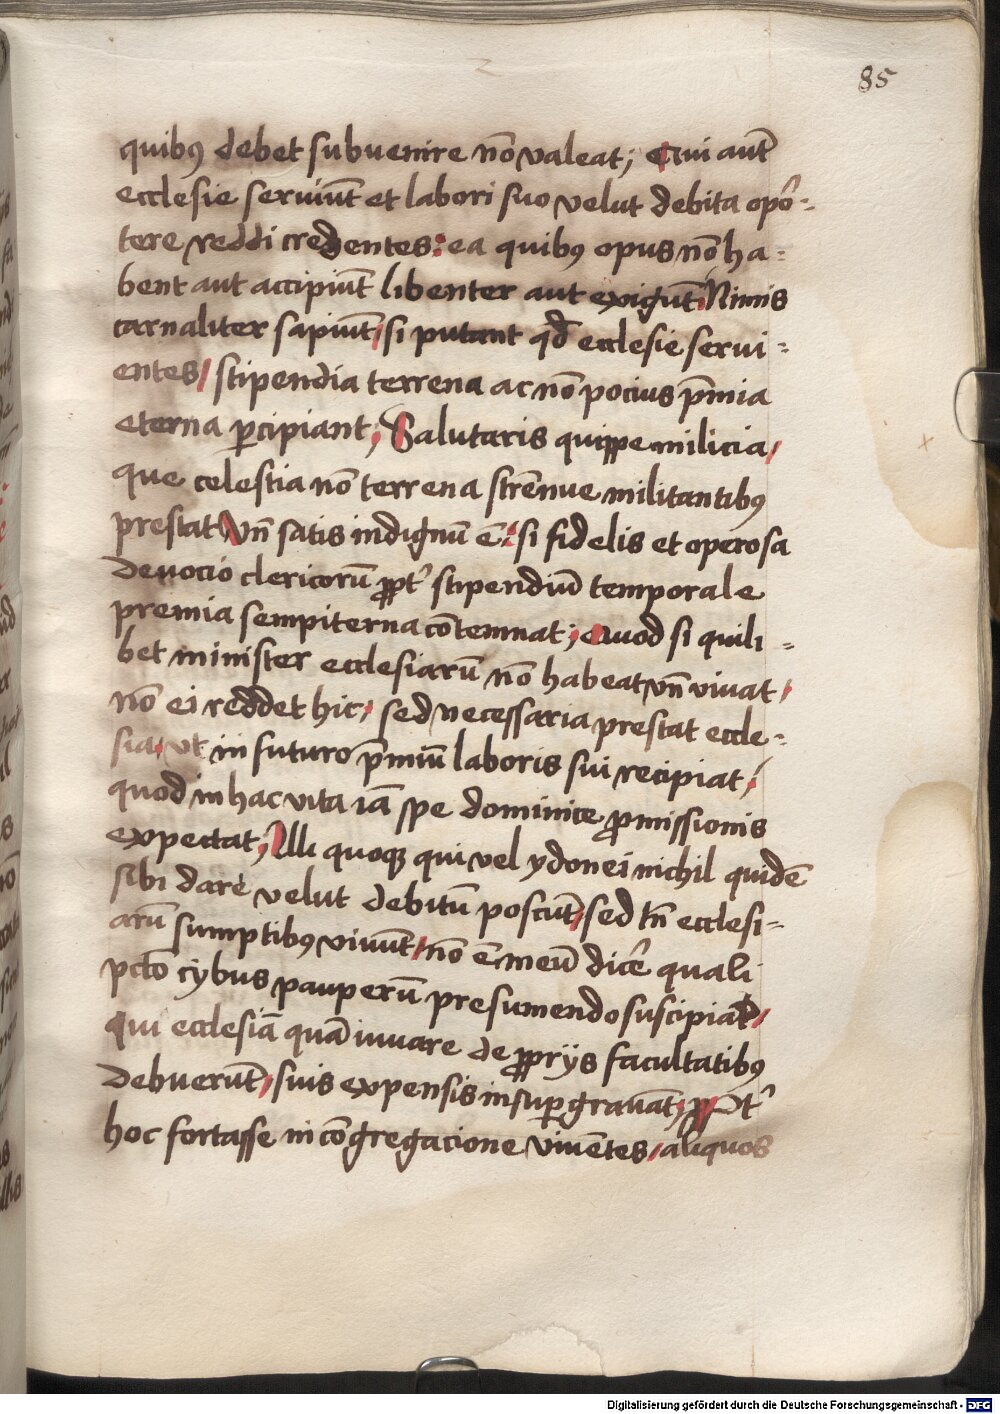 85
quibꝰ debet subuenire nō valeat; Qui autē
ecclesie seruiūt et labori suo velut debita opor-
tere reddi credentes: ea quibꝰ opus nō ha-
bent aut accipiūt libenter aut exigūt Nimis
carnaliter sapiūt, si putant qd̄ ecclesie servi-
entes/ stipendia terrena ac nō pocius p̄mia
eterna ꝑcipiant; Salutaris quippe milicia/
que celestia nō terrena strēnue militantibꝰ
prestat Vn̄ satis indignū ē: si fidelis et operosa
deuocio clericorū ꝓpt̉ stipendiū temporale
premia sempiterna cōtemnat; Quod si quili-
bet minister ecclesiarū nō habeat vn̄ viuat/
nō ei reddet hic, sed necessaria prestat eccle-
sia, vt in futuro p̄miū laboris sui recipiat;
quod in hac vita iā spe dominice ꝓmissionis
expectat; Illi quoqꝫ qui vel ydonei nichil quidē
sibi dare velut debitū poscūt, sed tn̄ ecclesi-
arū sumptibꝰ viuūt/ nō ē meū dicē quali
pctō cybus pauperū presumendo suscipiāt/
Qui ecclesiā quā iuuare de ꝓprijs facultatibꝰ
debuerūt/ suis expensis insuꝑ grauāt; Ꝓpt̉
hoc fortasse in cōgregacione viuētes/ aliquos
Digitalisierung gefördert durch die Deutsche Forschungsgemeinschaft - DFG